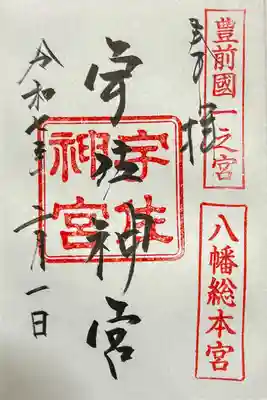 豊前國一之宮
八幡総本宮
奉拝
宇佐神宮
宇佐
神宮
令和七年二月一日